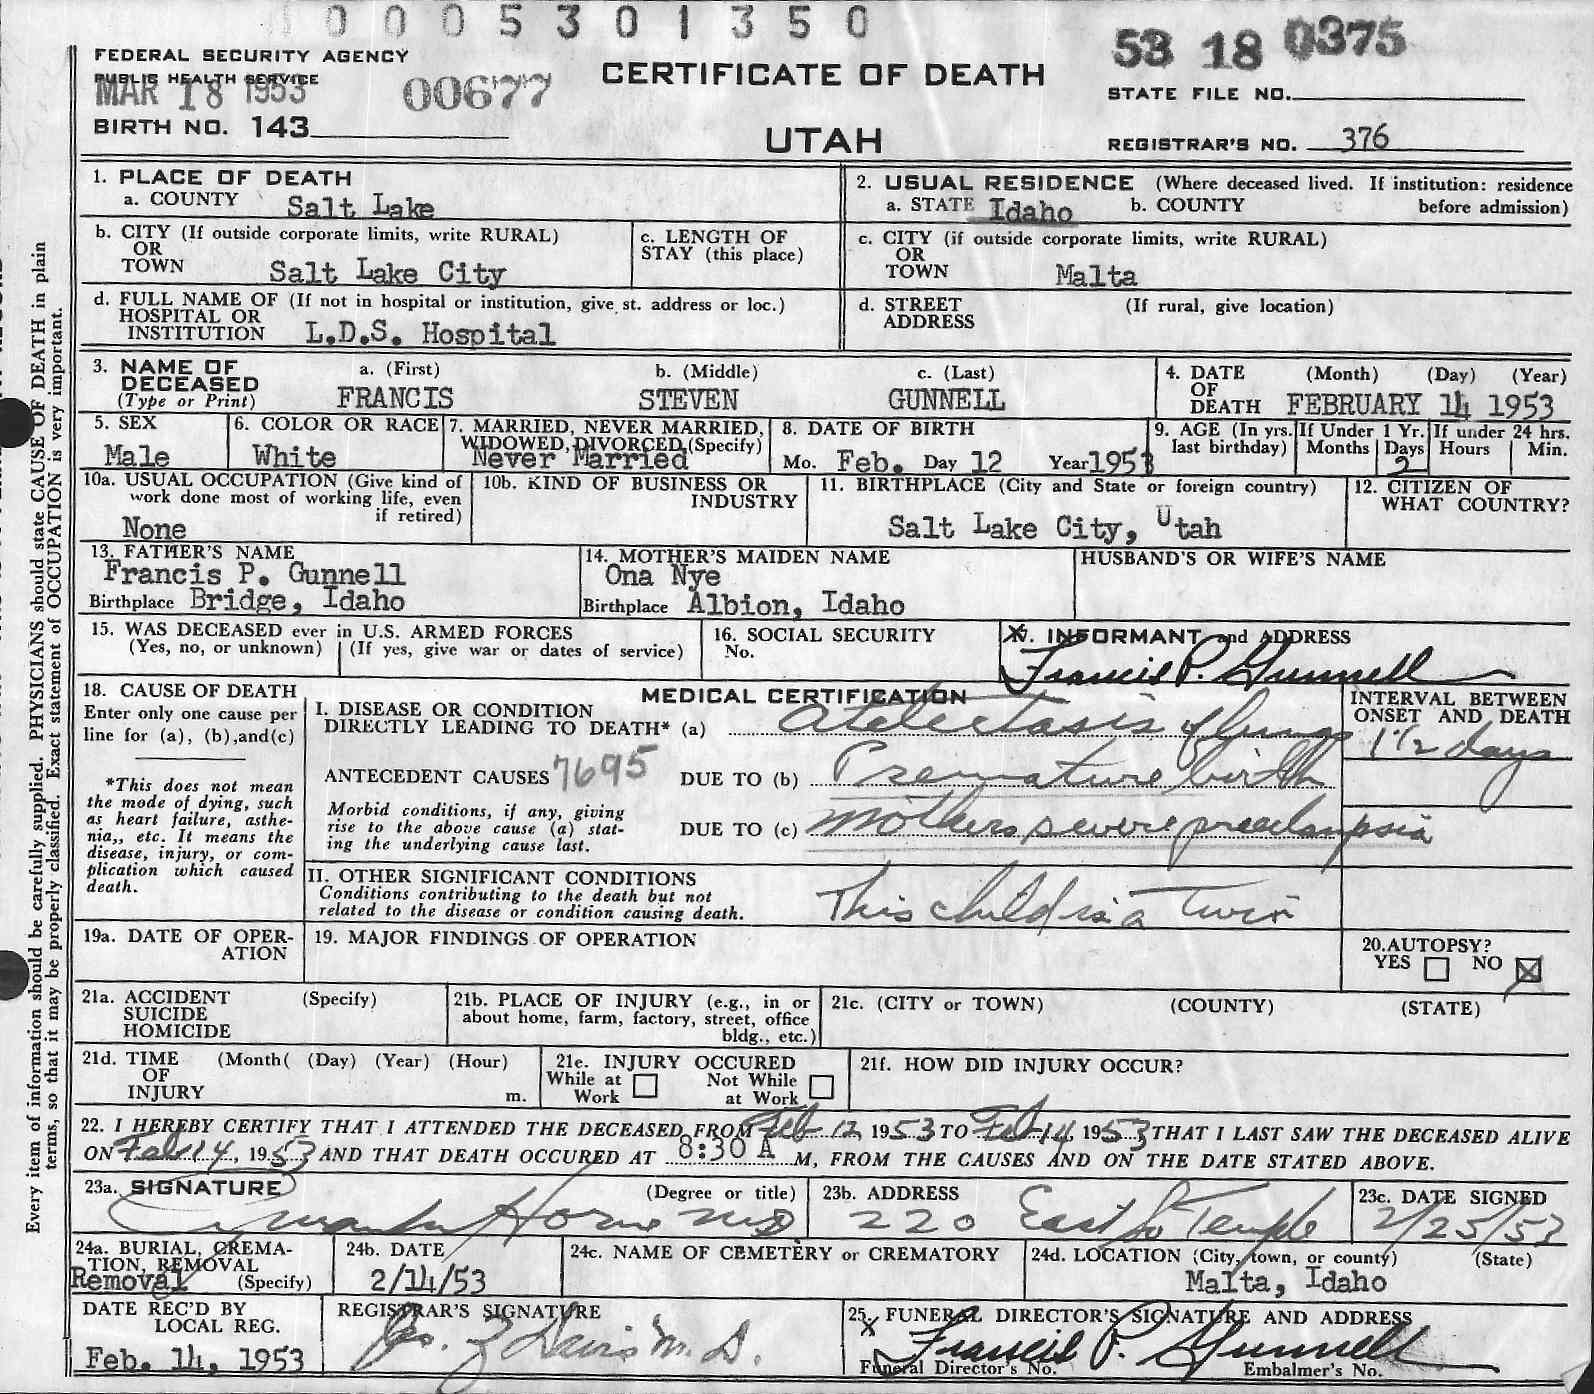 0005301350
FEDERAL SECURITY AGENCY
PUBLIC HEALTH SERVICE
MAR 18 1953
00677
CERTIFICATE OF DEATH
53 18 0375
STATE FILE NO.
BIRTH NO. 143
UTAH
REGISTRAR'S NO. 376
1. PLACE OF DEATH
a. COUNTY Salt Lake
2. USUAL RESIDENCE (Where deceased lived. If institution: residence
a. STATE Idaho b. COUNTY before admission)
b. CITY (If outside corporate limits, write RURAL)
OR
TOWN Salt Lake City
c. LENGTH OF
STAY (this place)
c. CITY (if outside corporate limits, write RURAL)
OR
TOWN Malta
d. FULL NAME OF (If not in hospital or institution, give st. address or loc.)
HOSPITAL OR
INSTITUTION L.D.S. Hospital
d. STREET (If rural, give location)
ADDRESS
3. NAME OF a. (First) b. (Middle) c. (Last)
DECEASED
(Type or Print) FRANCIS STEVEN GUNNELL
4. DATE (Month) (Day) (Year)
OF
DEATH FEBRUARY 14 1953
5. SEX
Male
6. COLOR OR RACE
White
7. MARRIED, NEVER MARRIED,
WIDOWED, DIVORCED (Specify)
Never Married
8. DATE OF BIRTH
Mo. Feb. Day 12 Year 1953
9. AGE (In yrs. last birthday)
If Under 1 Yr.
Months Days
2
If under 24 hrs.
Hours Min.
10a. USUAL OCCUPATION (Give kind of
work done most of working life, even
if retired)
None
10b. KIND OF BUSINESS OR
INDUSTRY
11. BIRTHPLACE (City and State or foreign country)
Salt Lake City, Utah
12. CITIZEN OF
WHAT COUNTRY?
13. FATHER'S NAME
Francis P. Gunnell
Birthplace Bridge, Idaho
14. MOTHER'S MAIDEN NAME
Ona Nye
Birthplace Albion, Idaho
HUSBAND'S OR WIFE'S NAME
15. WAS DECEASED ever in U.S. ARMED FORCES
(Yes, no, or unknown) (If yes, give war or dates of service)
16. SOCIAL SECURITY
No.
INFORMANT and ADDRESS
Francis P. Gunnell
18. CAUSE OF DEATH
Enter only one cause per
line for (a), (b),and(c)
*This does not mean
the mode of dying, such
as heart failure, asthe-
nia,, etc. It means the
disease, injury, or com-
plication which caused
death.
MEDICAL CERTIFICATION
I. DISEASE OR CONDITION
DIRECTLY LEADING TO DEATH* (a) Atelectasis of lungs
INTERVAL BETWEEN
ONSET AND DEATH
1 1/2 days
ANTECEDENT CAUSES 7695 DUE TO (b) Premature birth
Morbid conditions, if any, giving
rise to the above cause (a) stat-
ing the underlying cause last.
DUE TO (c) Mothers severe preeclampsia
II. OTHER SIGNIFICANT CONDITIONS
Conditions contributing to the death but not
related to the disease or condition causing death.
This child is a twin
19a. DATE OF OPER-
ATION
19. MAJOR FINDINGS OF OPERATION
20.AUTOPSY?
YES NO
21a. ACCIDENT (Specify)
SUICIDE
HOMICIDE
21b. PLACE OF INJURY (e.g., in or
about home, farm, factory, street, office
bldg., etc.)
21c. (CITY or TOWN) (COUNTY) (STATE)
21d. TIME (Month( (Day) (Year) (Hour)
OF
INJURY m.
21e. INJURY OCCURED
While at Work
Not While at Work
21f. HOW DID INJURY OCCUR?
22. I HEREBY CERTIFY THAT I ATTENDED THE DECEASED FROM Feb 12 1953 TO Feb 14, 1953 THAT I LAST SAW THE DECEASED ALIVE
ON Feb 14, 1953 AND THAT DEATH OCCURED AT 8:30 A M, FROM THE CAUSES AND ON THE DATE STATED ABOVE.
23a. SIGNATURE (Degree or title)
Horne MD
23b. ADDRESS
220 East So Temple
23c. DATE SIGNED
2/25/53
24a. BURIAL, CREMA-
TION, REMOVAL
Removal (Specify)
24b. DATE
2/14/53
24c. NAME OF CEMETERY or CREMATORY
24d. LOCATION (City, town, or county) (State)
Malta, Idaho
DATE REC'D BY
LOCAL REG.
Feb. 14, 1953
REGISTRAR'S SIGNATURE
Davis M.D.
25. FUNERAL DIRECTOR'S SIGNATURE AND ADDRESS
X Francis P. Gunnell
Funeral Director's No. Embalmer's No.
Every item of information should be carefully supplied. PHYSICIANS should state CAUSE OF DEATH in plain
terms, so that it may be properly classified. Exact statement of OCCUPATION is very important.